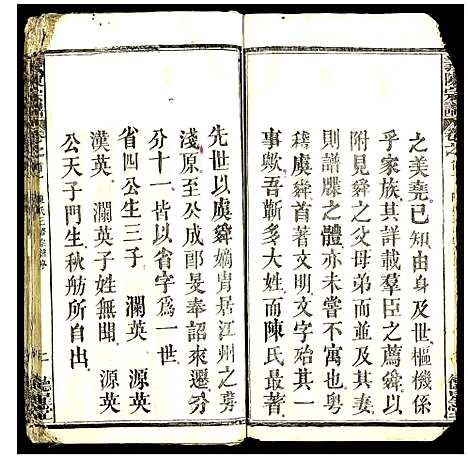 之美堯已知由身及世樞機係
乎家族其詳載羣臣之薦舜以
附見舜之父母弟而並及其妻
則譜牒之體亦未嘗不寓也粵
稽虞舜首著文明文字始其一
事歟吾蘄多大姓而陳氏最著
先世以虞舜嫡胄居江州之
淺原至公成郎晏奉詔來遷分
分十一皆以省字爲一世
省四公生三子 瀾英 源英
漢英 瀾英子姓無聞 源英
公天子門生秋舫所自出
德星堂